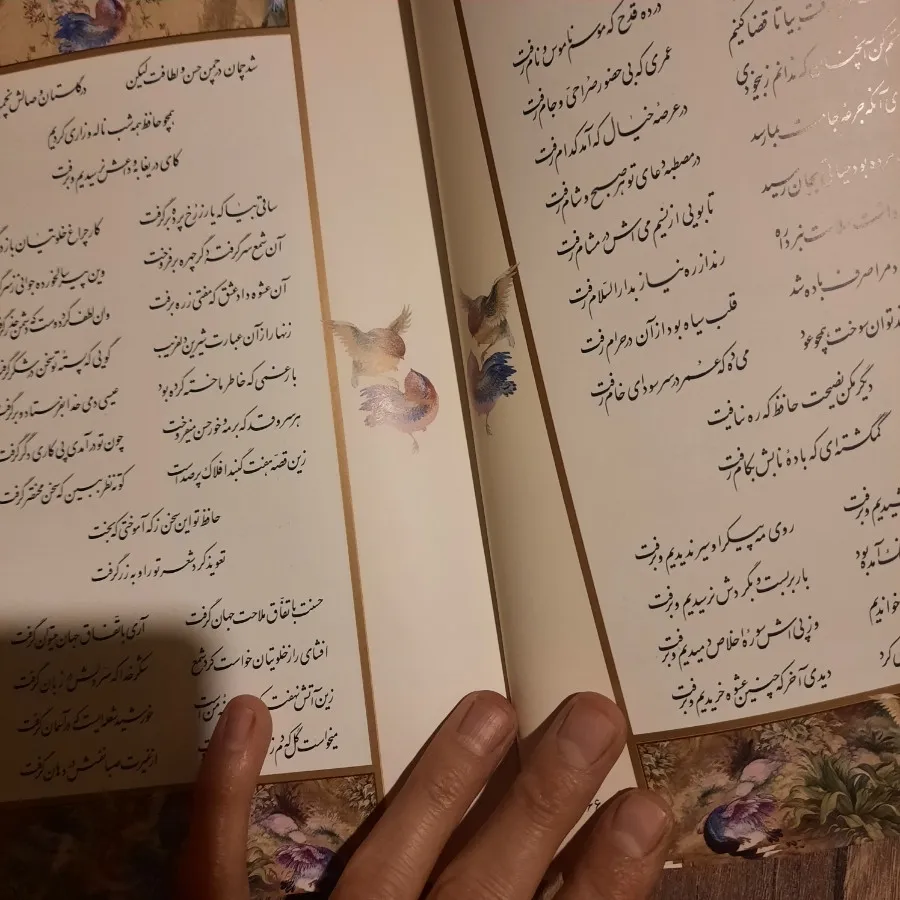 درده قدح که موسم ناموس و نام رفت
رفت بیا تا قضا کنیم عمری که بی حضور صراحی و جام رفت
کن آنچنان که ندانم ز بیخودی در عرصه خیال که آمد کدام رفت
آنکه جرعه جامت بما رسد در مصطبه دعای تو هر صبح و شام رفت
مرده بود حیاتی بجان رسید تا بویی از نسیم می اش در مشام رفت
داشت سلامت نبرد راه رند از ره نیاز بدارالسلام رفت
مرا صرف باده شد قلب سیاه بود از آن در حرام رفت
توان سوخت همچو عود می ده که عمر در سر سودای خام رفت
دیگر مکن نصیحت حافظ که ره نیافت
گمگشته ای که بادهٔ نابش بکام رفت
نچشیدیم و برفت روی مه پیکر او سیر ندیدیم و برفت
آمده بود بار بربست و بگردش نرسیدیم و برفت
خواندیم وز پی اش سورهٔ اخلاص دمیدیم و برفت
کرد دیدی آخر که چنین عشوه خریدیم و برفت
شد چمان در چمن حسن و لطافت لیکن در گلستان وصالش
همچو حافظ همه شب ناله و زاری کردیم
کای دریغا به وداعش نرسیدیم و برفت
ساقی بیا که یار ز رخ پرده برگرفت کار چراغ خلوتیان باز
آن شمع سرگرفته دگر چهره برفروخت وین پیر سالخورده جوانی ز سر
آن عشوه داد عشق که مفتی ز ره برفت وان لطف کرد دوست که دشمن حذر
زنهار از آن عبارت شیرین دلفریب گویی که پسته تو سخن در شکر گرفت
بار غمی که خاطر ما خسته کرده بود عیسی دمی خدا بفرستاد و برگرفت
هر سرو قد که بر مه و خور حسن میفروخت چون تو درآمدی پی کاری دگر گرفت
زین قصه هفت گنبد افلاک پر صداست کوته نظر ببین که سخن مختصر گرفت
حافظ تو این سخن ز که آموختی که بخت
تعویذ کرد شعر تو را و به زر گرفت
حسنت باتفاق ملاحت جهان گرفت آری باتفاق جهان میتوان گرفت
افشای راز خلوتیان خواست کرد شمع شکر خدا که سر دلش در زبان گرفت
زین آتش نهفته من است خورشید شعله ایست که در آسمان گرفت
میخواست گل که دم ز از غیرت صبا نفسش در دهان گرفت